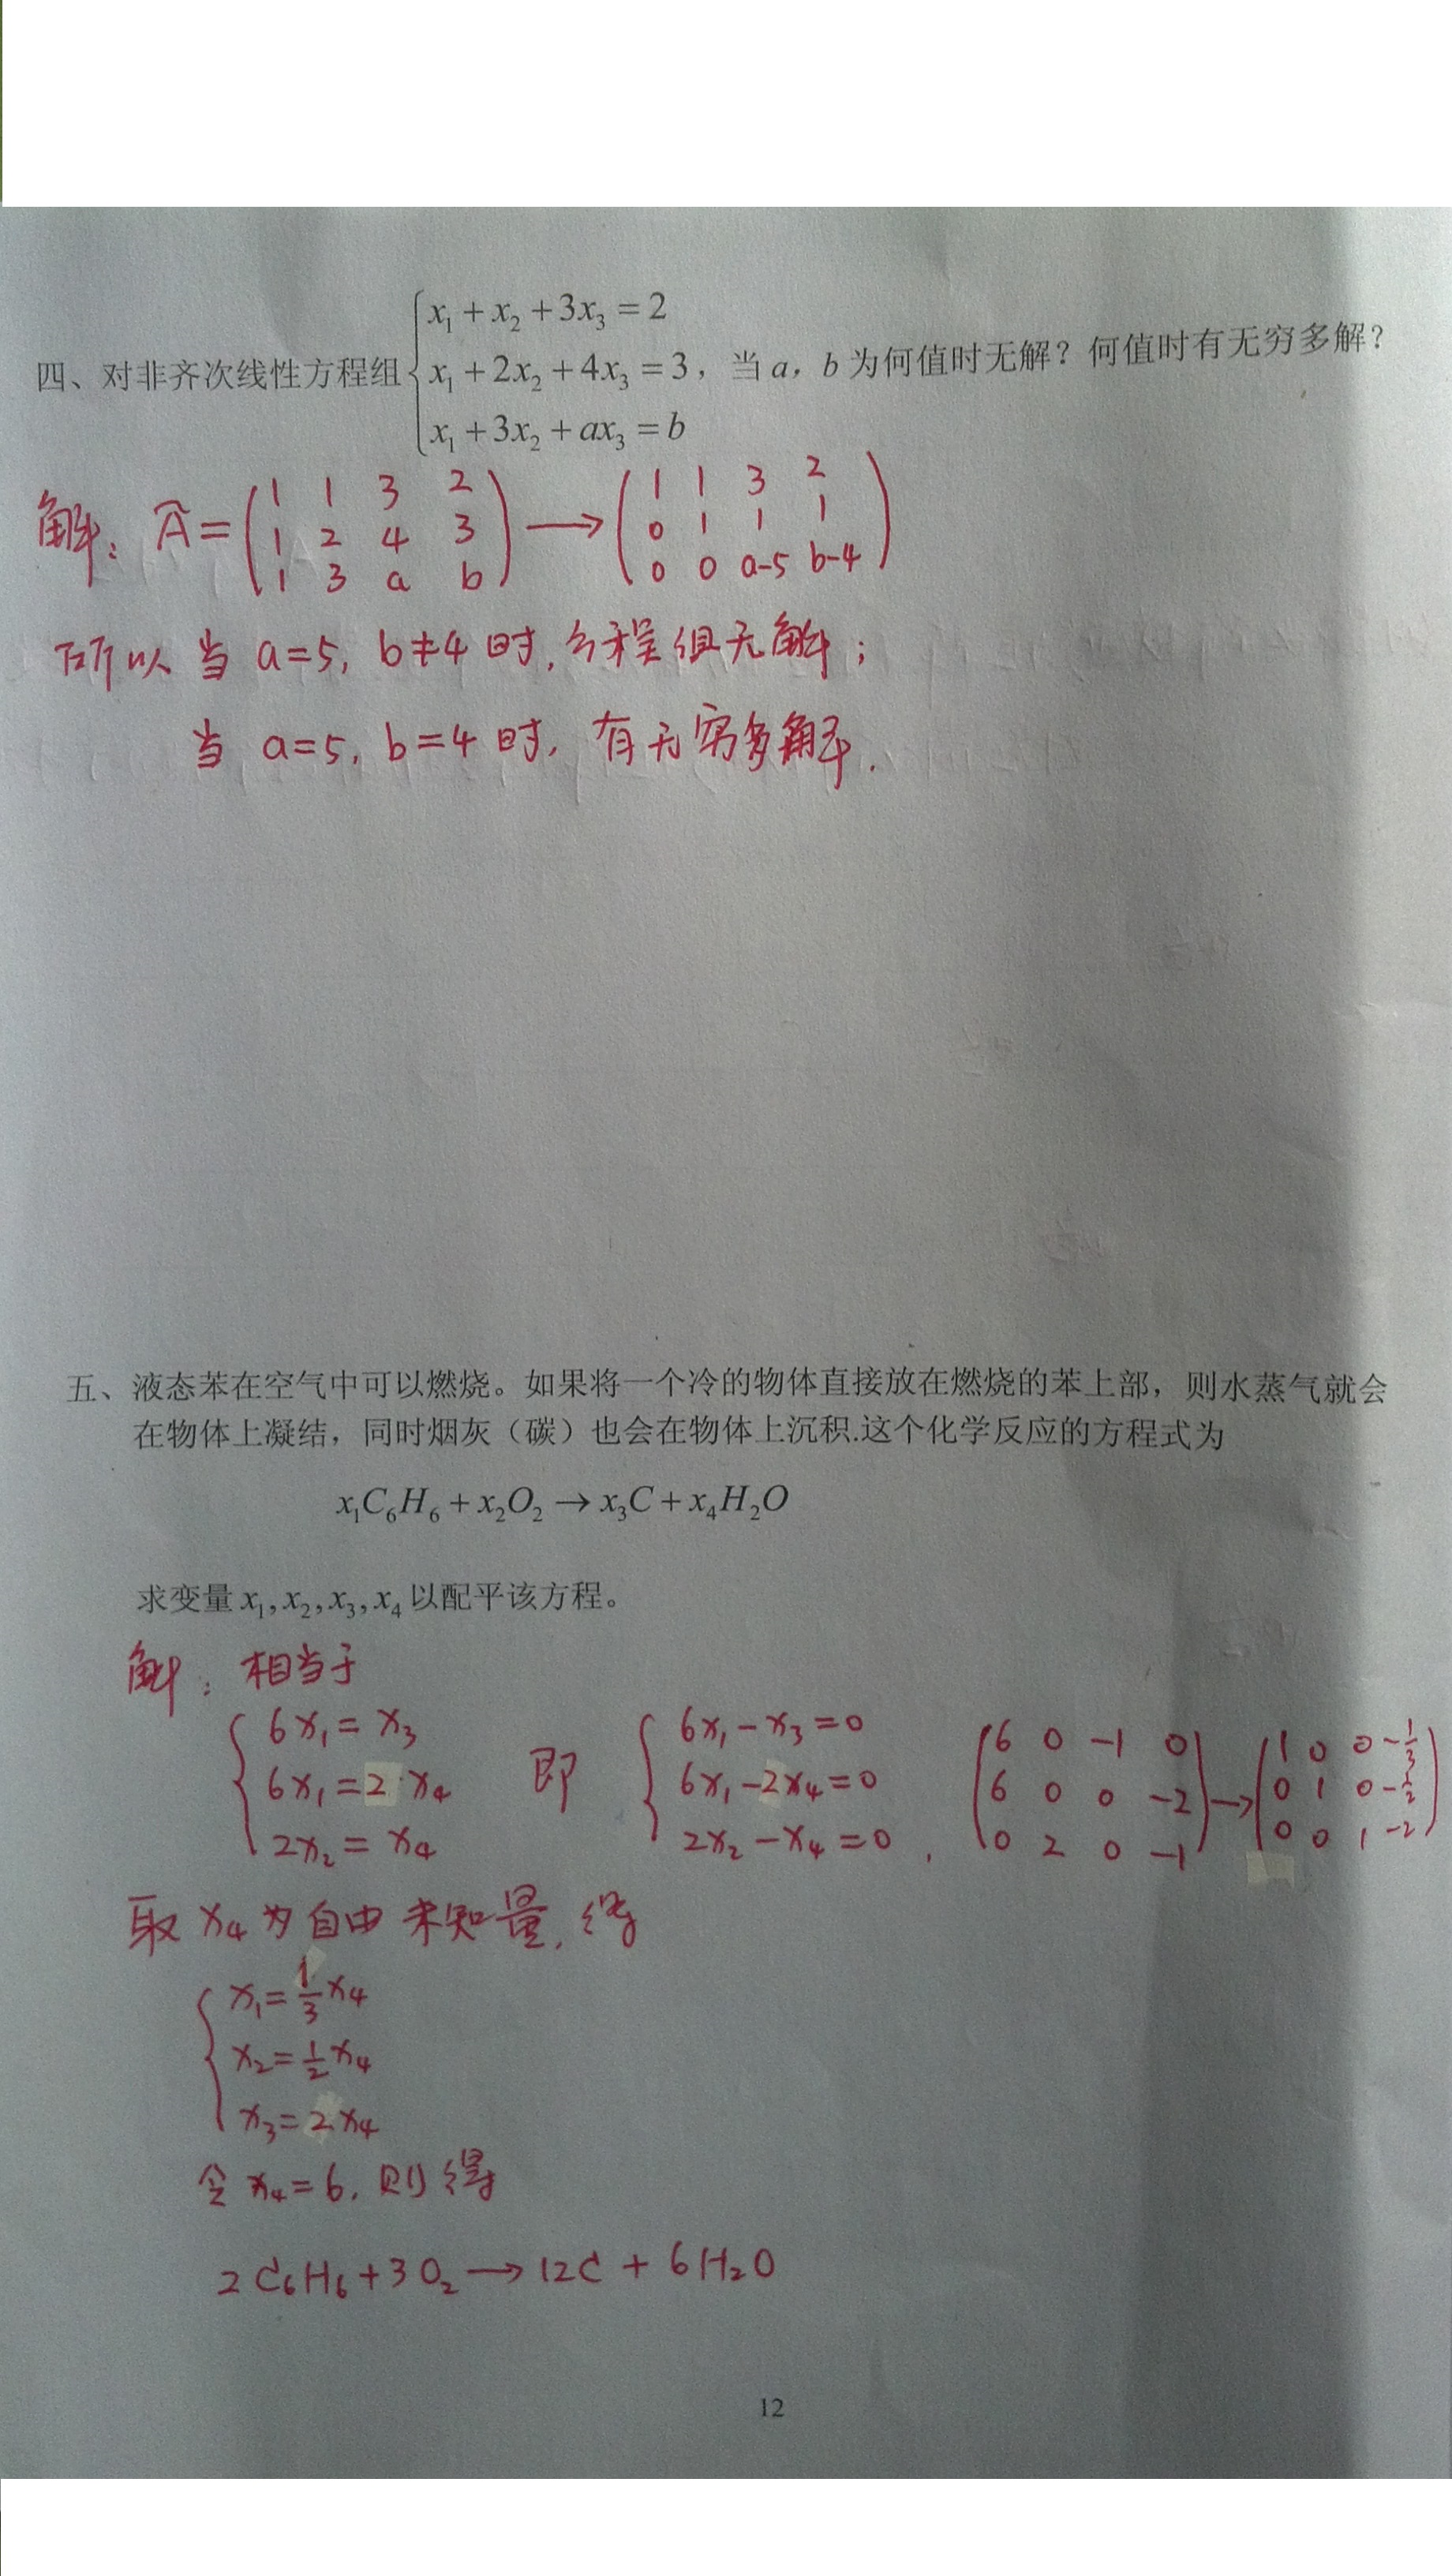 四、对非齐次线性方程组 { x₁+x₂+3x₃=2
x₁+2x₂+4x₃=3，当 a，b 为何值时无解？何值时有无穷多解？
x₁+3x₂+ax₃=b
解: Ã= ( 1 1 3 2 ) → ( 1 1 3 2 )
( 1 2 4 3 ) ( 0 1 1 1 )
( 1 3 a b ) ( 0 0 a-5 b-4 )
所以当 a=5, b≠4 时, 方程组无解;
当 a=5, b=4 时, 有无穷多解.
五、液态苯在空气中可以燃烧。如果将一个冷的物体直接放在燃烧的苯上部，则水蒸气就会
在物体上凝结，同时烟灰（碳）也会在物体上沉积.这个化学反应的方程式为
x₁C₆H₆+x₂O₂→x₃C+x₄H₂O
求变量 x₁,x₂,x₃,x₄ 以配平该方程。
解: 相当于
{ 6x₁=x₃ { 6x₁-x₃=0 ( 6 0 -1 0 ) ( 1 0 0 -1/3 )
6x₁=2x₄ 即 6x₁-2x₄=0 ( 6 0 0 -2 ) → ( 0 1 0 -1/2 )
2x₂=x₄ 2x₂-x₄=0 , ( 0 2 0 -1 ) ( 0 0 1 -2 )
取 x₄ 为自由未知量, 得
{ x₁=1/3 x₄
x₂=1/2 x₄
x₃=2x₄
令 x₄=6, 则得
2C₆H₆+3O₂→12C+6H₂O
12